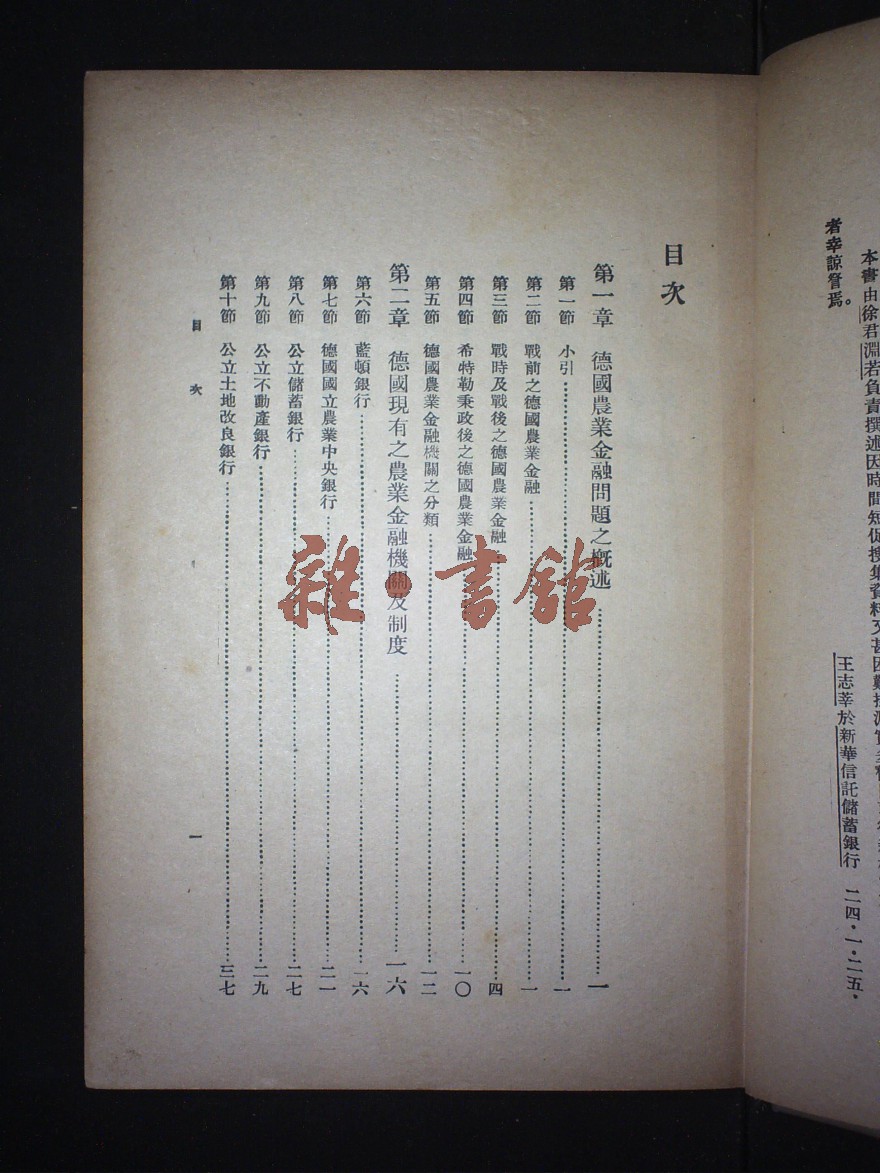 本書由徐君淵若負責撰述因時間短促搜集資料又甚困難
者幸諒詧焉。
王志莘於新華信託儲蓄銀行 二四·一·二五·
目次
第一章 德國農業金融問題之概述……一
第一節 小引……一
第二節 戰前之德國農業金融……一
第三節 戰時及戰後之德國農業金融……四
第四節 希特勒秉政後之德國農業金融……一〇
第五節 德國農業金融機關之分類……一二
第二章 德國現有之農業金融機關及制度……一六
第六節 藍頓銀行……一六
第七節 德國國立農業中央銀行……二一
第八節 公立儲蓄銀行……二七
第九節 公立不動產銀行……二九
第十節 公立土地改良銀行……三七
目次
一
雜·書館